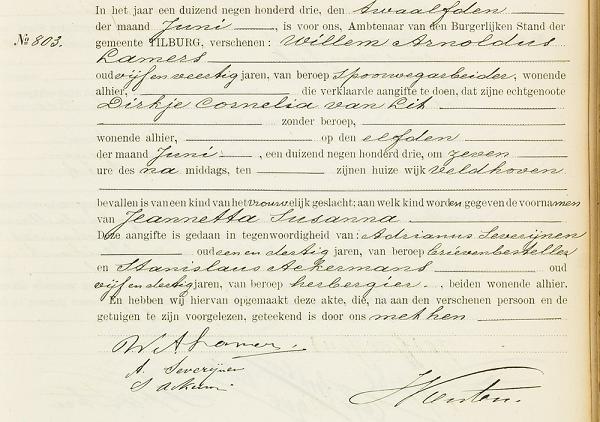 In het jaar een duizend negen honderd drie, den twaalfden
der maand Juni, is voor ons, Ambtenaar van den Burgerlijken Stand der
No 803.
gemeente TILBURG, verschenen: Willem Arnoldus
Lamers
oud vijf en veertig jaren, van beroep spoorwegarbeider, wonende
alhier, die verklaarde aangifte te doen, dat zijne echtgenoote
Dirkje Cornelia van Lit
zonder beroep,
wonende alhier, op den elfden
der maand Juni, een duizend negen honderd drie, om zeven
ure des na middags, ten zijnen huize wijk Veldhoven
bevallen is van een kind van het vrouwelijk geslacht; aan welk kind worden gegeven de voornamen
van Jeannetta Susanna
Deze aangifte is gedaan in tegenwoordigheid van: Adrianus Severijnen
oud een en dertig jaren, van beroep brievenbesteller
en Stanislaus Ackermans oud
vijf en dertig jaren, van beroep herbergier, beiden wonende alhier.
En hebben wij hiervan opgemaakt deze akte, die, na aan den verschenen persoon en de
getuigen te zijn voorgelezen, geteekend is door ons met hen
W A Lamers.
A. Severijnen
S Ackerm